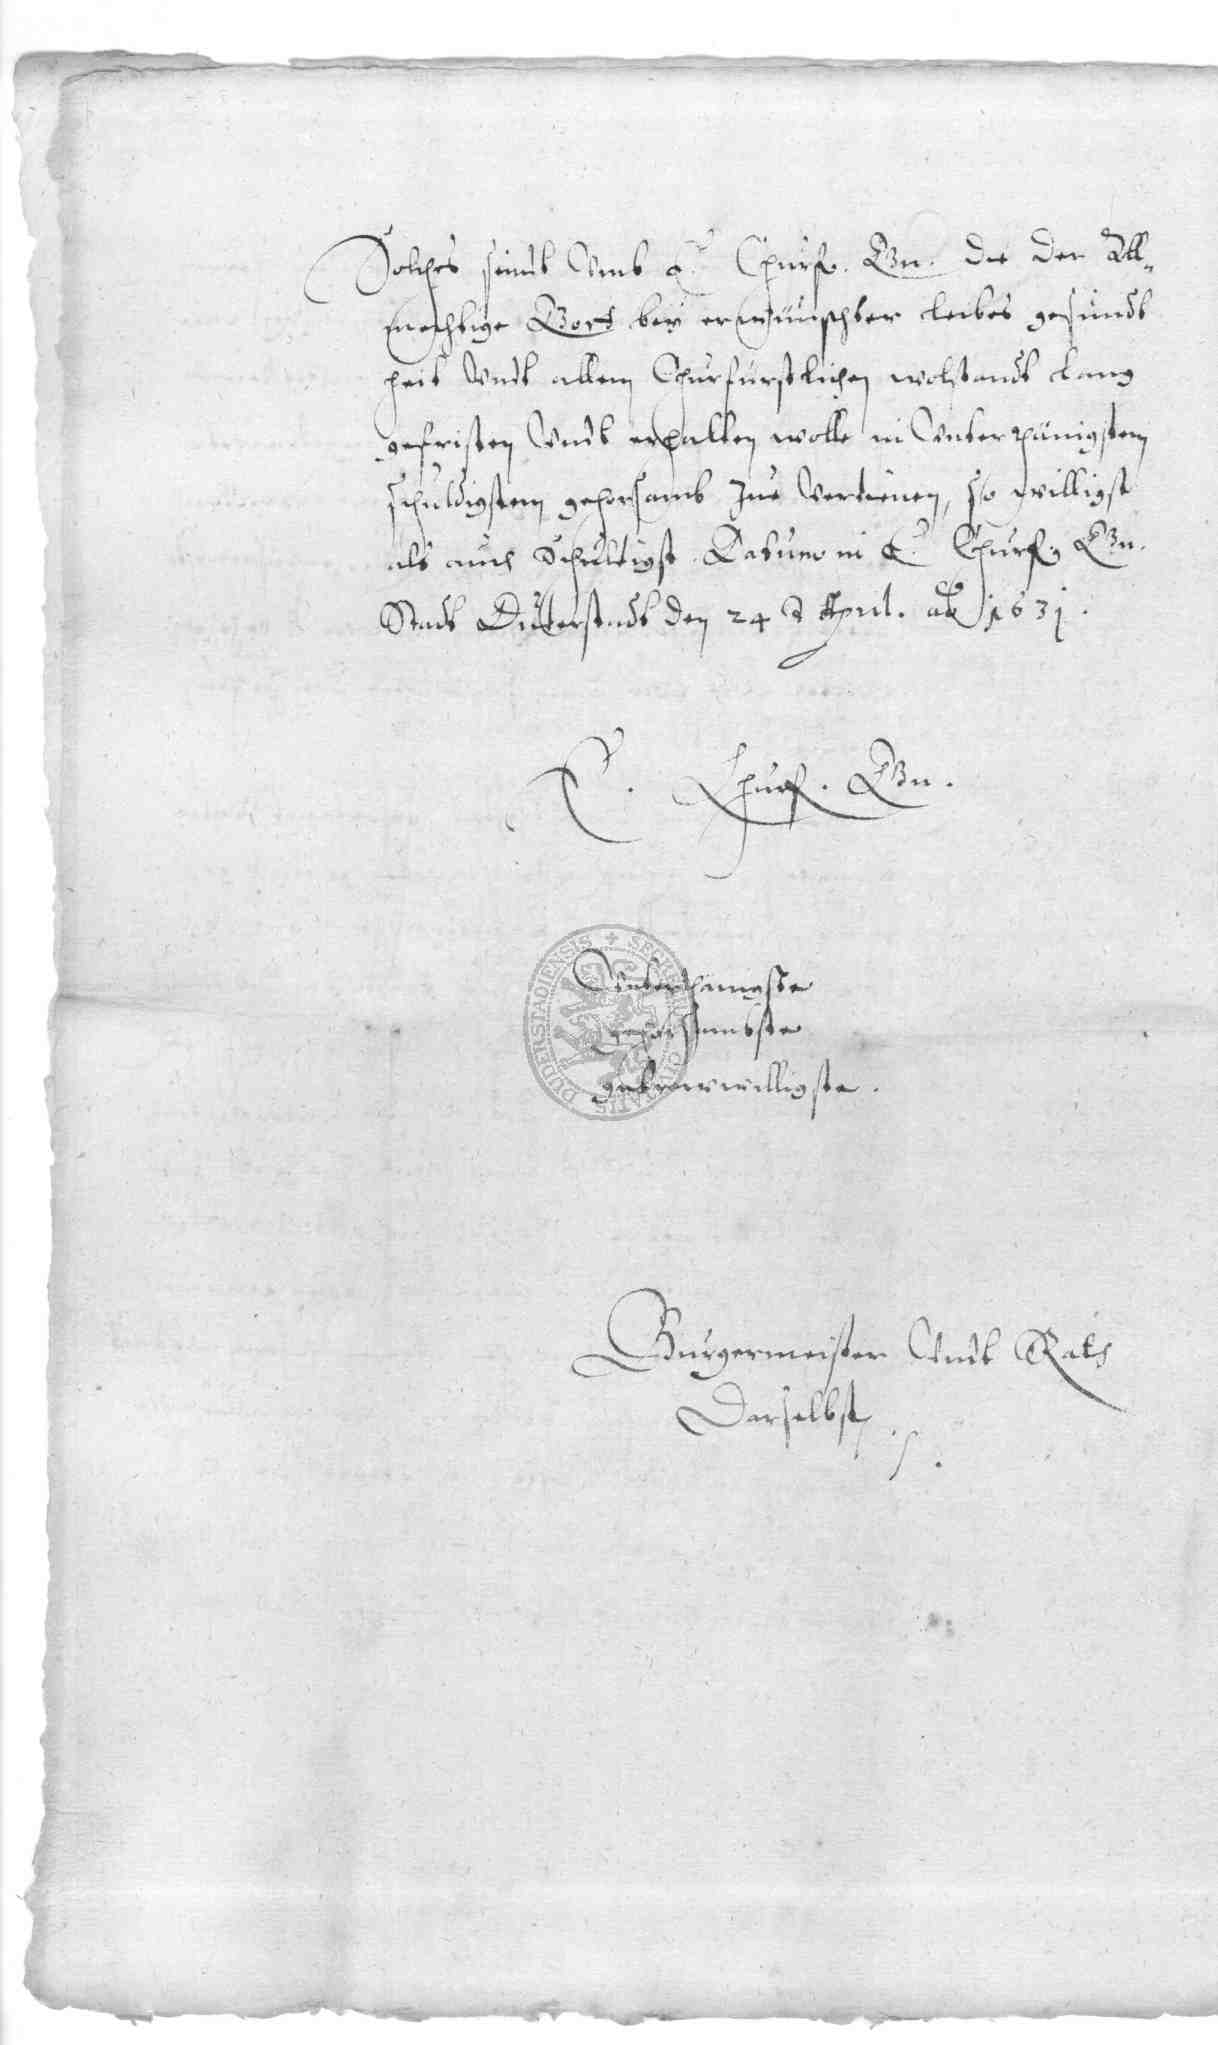 Solches seindt Vmb E. Churf. Gn. die der All-
mechtige Gott bey erwünschter leibes gesundt
heit Vndt allem Churfürstlichen wolstandt lang
gefristen Vndt erhalten wolle in Vnterthänigstem
schuldigstem gehorsamb Zue Verdienen, so willigst
als auch Schuldigst Datum in E. Churf. Gn.
Stadt Duderstadt den 24 April. ao 1631.
E. Churf. Gn.
Vnterthänigste
gehorsambste
gutwilligste.
Burgermeister Vndt Rath
Darselbst.
SECRETUM CIVITATIS DUDERSTADIENSIS